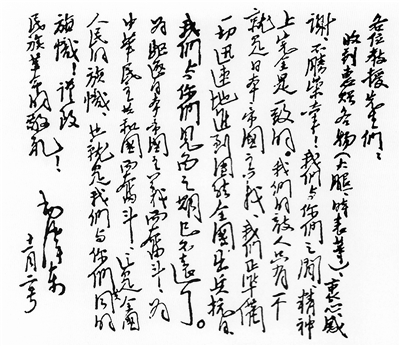 各位教授先生们:
收到惠赠各物(火腿、时表等),衷心感
谢,不胜荣幸!我们与你们之间,精神
上完全是一致的。我们的敌人只有一个
就是日本帝国主义,我们正准备
一切迅速地进到团结全国出兵抗日,
我们与你们见面之期已不远了。
为驱逐日本帝国主义而奋斗!为
中华民主共和国而奋斗!这是全国
人民的旗帜,也就是我们与你们共同的
旗帜!谨致
民族革命的敬礼!
毛泽东
十一月二号